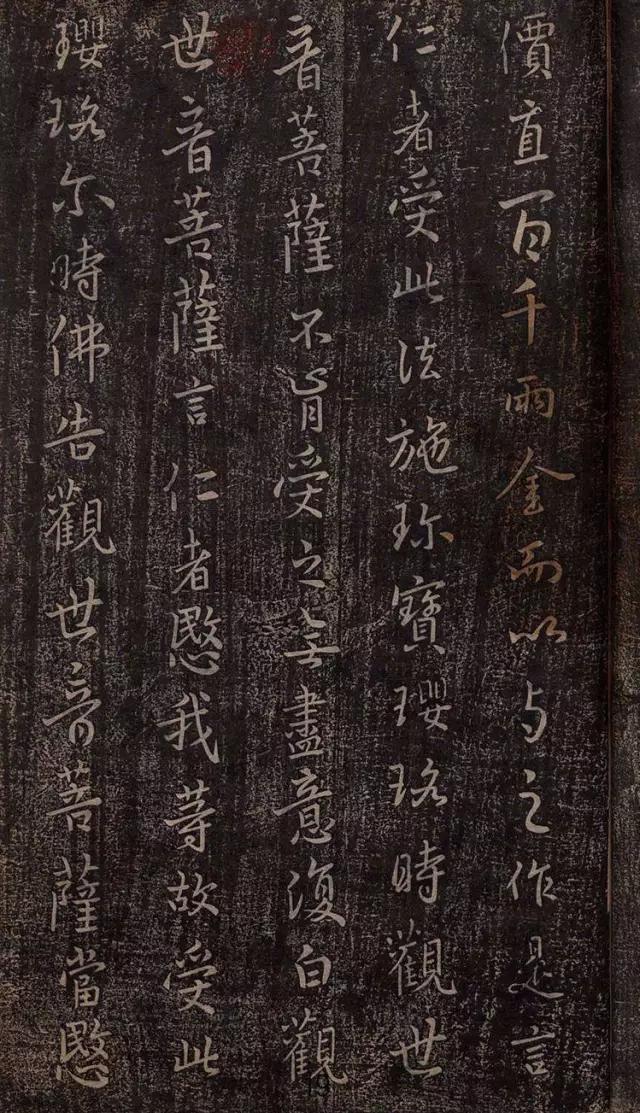 價直百千兩金而以与之作是言
仁者受此法施珎寶瓔珞時觀世
音菩薩不肯受之无盡意復白觀
世音菩薩言仁者愍我等故受此
瓔珞尔時佛告觀世音菩薩當愍